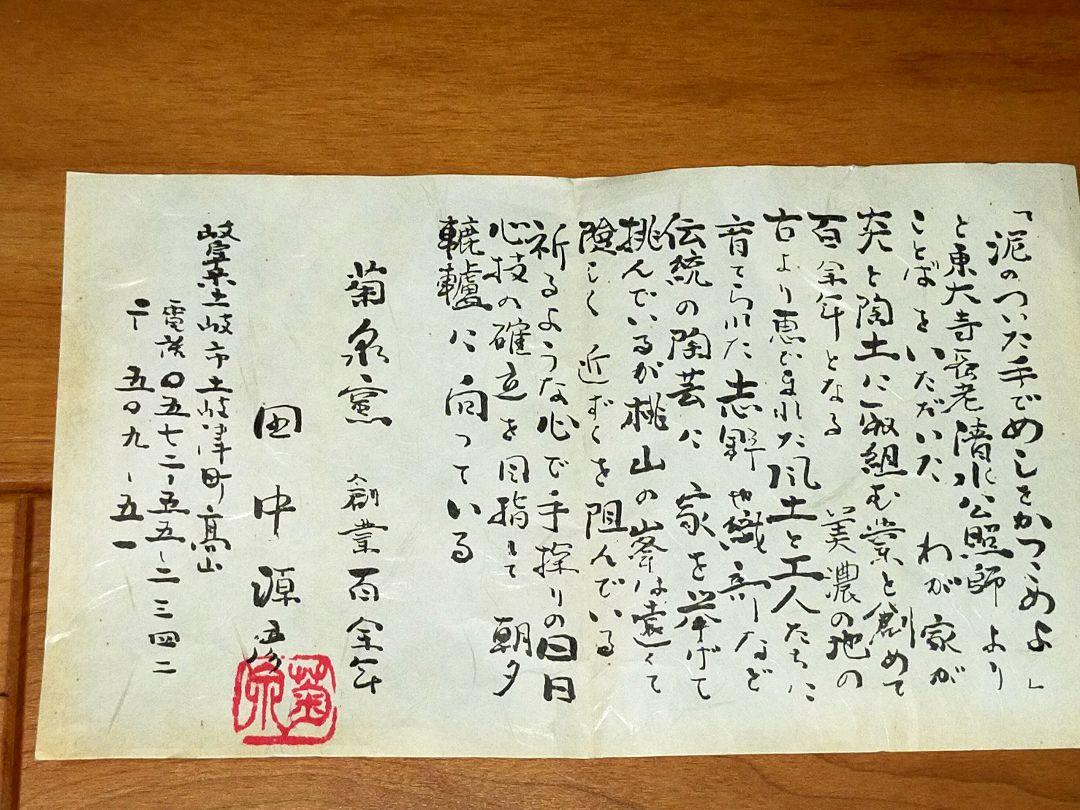 「泥のついた手でめしをかつこめよ」
と東大寺長老清水公照師より
ことばをいただいた わが家が
炎と陶土に取組む業を創めて
百余年となる 美濃の地の
古より恵まれた風土と工人たちに
育てられた志野や織部など
伝統の陶芸に 家を挙げて
挑んでいるが桃山の峯は遠くて
険しく 近ずくを阻んでいる
祈るような心で手探りの日日
心技の確立を目指して 朝夕
轆轤に向っている
菊泉窯 創業百余年
田中源彦
菊泉
岐阜県土岐市土岐津町高山
電話〇五七二-五五-二三四二
〒 五〇九-五一